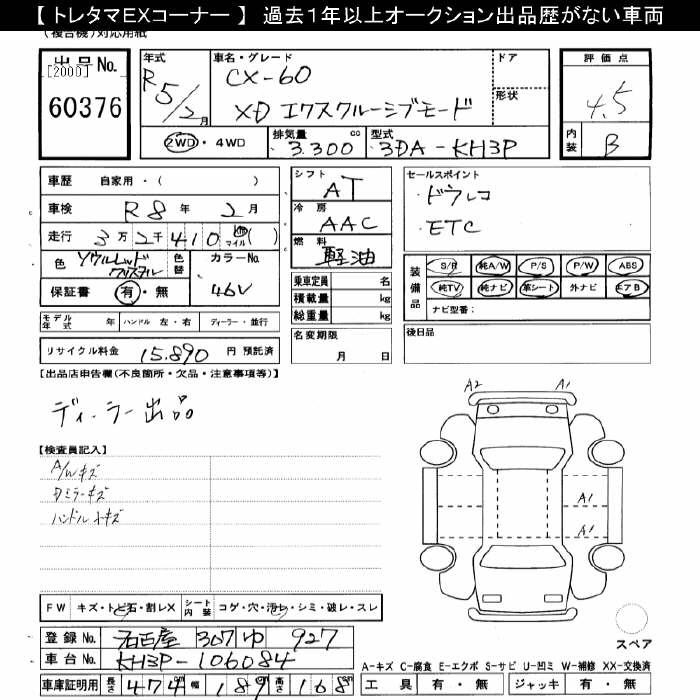 【 トレタマEXコーナー 】 過去1年以上オークション出品歴がない車両
(複合機)対応用紙
出品No.
[2000]
60376
年式 R5/2月
車名・グレード
CX-60
XD エクスクルーシブモード
ドア
形状
評価点
4.5
内装 B
2WD・4WD
排気量 3.300 cc
型式 3DA-KH3P
車歴 自家用・( )
車検 R8年 2月
走行 3万2千410 km マイル ( )
色 ソウルレッドクリスタル 色替 カラーNo. 46V
保証書 有・無
シフト AT
冷房 AAC
燃料 軽油
乗車定員 名
積載量 kg
総重量 kg
セールスポイント
・ドラレコ
・ETC
装備品 S/R 純A/W P/S P/W ABS
純TV 純ナビ 革シート 外ナビ エアB
ナビ型番:
モデル年式 年 ハンドル 左・右 ディーラー・並行
リサイクル料金 15.890 円 預託済
名変期限
月 日
後日品
【出品店申告欄(不良箇所・欠品・注意事項等)】
ディーラー出品
A2 A1
【検査員記入】
A/Wキズ
Dミラーキズ
ハンドルキズ
A1
A1
FW キズ・トビ石・割レX シート内装 コゲ・穴・汚レ・シミ・破レ・スレ
登録No. 名古屋 307 ゆ 927
スペア
車台No. KH3P-106084
A-キズ C-腐食 E-エクボ S-サビ U-凹ミ W-補修 XX-交換済
車庫証明用 長さ 474 cm 幅 189 cm 高さ 168 cm
工具 有・無 ジャッキ 有・無